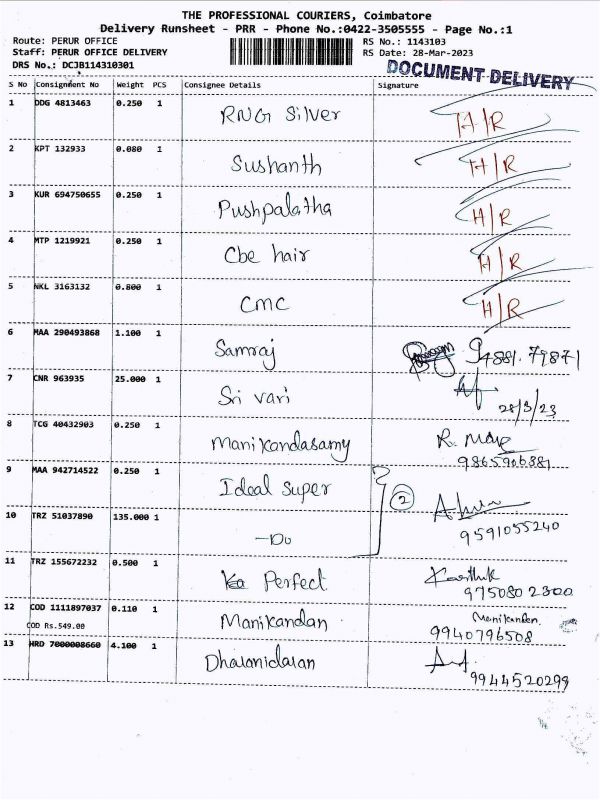 THE PROFESSIONAL COURIERS, Coimbatore
Delivery Runsheet - PRR - Phone No.:0422-3505555 - Page No.:1
Route: PERUR OFFICE RS No.: 1143103
Staff: PERUR OFFICE DELIVERY RS Date: 28-Mar-2023
DRS No.: DCJB114310301 DOCUMENT DELIVERY
S No Consignment No Weight PCS Consignee Details Signature
1 DDG 4813463 0.250 1 RNG Silver H/R
2 KPT 132933 0.080 1 Sushanth H/R
3 KUR 694750655 0.250 1 Pushpalatha H/R
4 MTP 1219921 0.250 1 Cbe hair H/R
5 NKL 3163132 0.800 1 CMC H/R
6 MAA 290493868 1.100 1 Samraj 94881.79871
7 CNR 963935 25.000 1 Sri vari
28/3/23
8 TCG 40432903 0.250 1 Manikandasamy
9865906381
9 MAA 942714522 0.250 1 Ideal Super 2
10 TRZ 51037890 135.000 1 -Do 9591055240
11 TRZ 155672232 0.500 1 Perfect Karthik
9750802300
12 COD 1111897037 0.110 1 Manikandan Manikanden.
COD Rs.549.00 9940796508
13 HRD 7000008660 4.100 1 Dharanidaran
9944520299